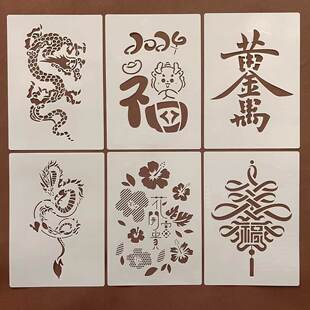 2024
福
黄
金
花
開
富
貴
福